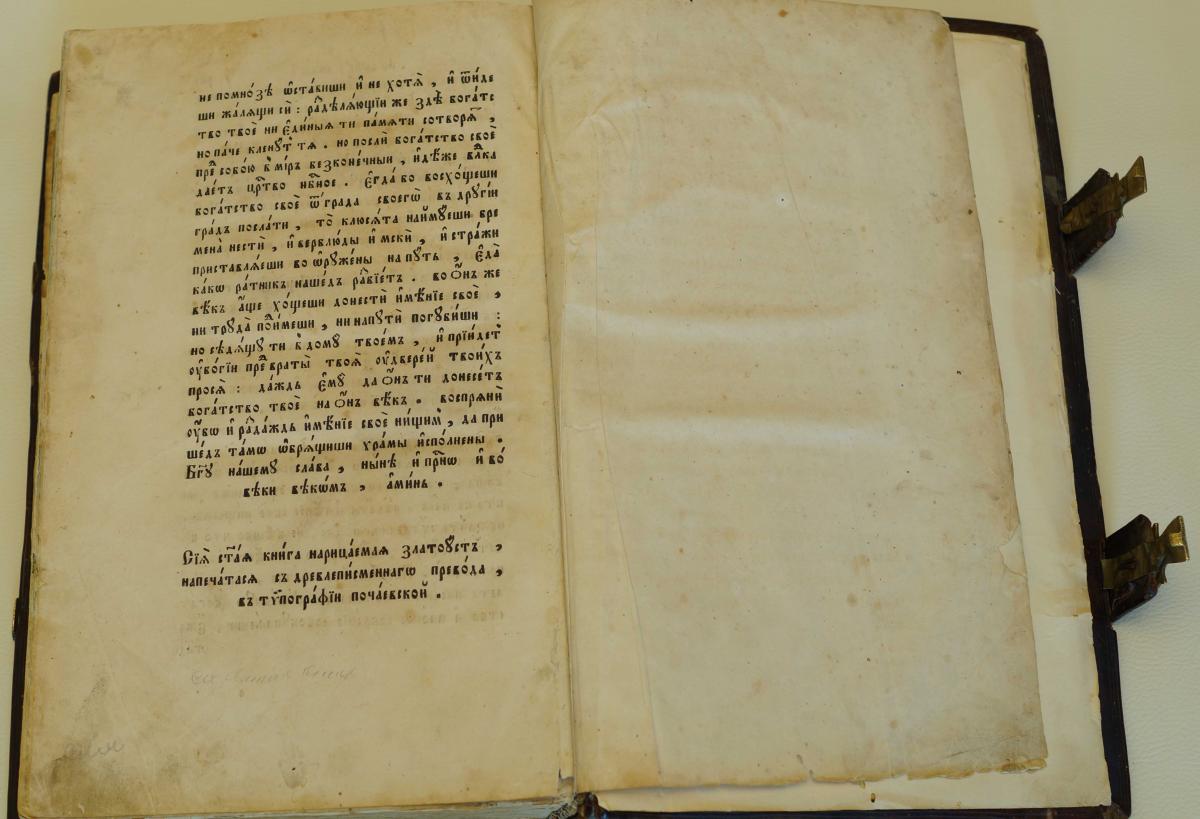 не помно́зѣ ѡ҆ста́виши и҆ не хотѧ̀ , и҆ ѿи́де
ши жалѧ́щи сѝ : раз̾дѣлѧ́ющїи же здѣ̀ бога́тс
тво твоѐ ни є҆ди́ныѧ ти па́мѧти сотворѧ́т̾ ,
но па́че кленꙋ́т̾ тѧ . но послѝ бога́тство своѐ
пред̾ собо́ю в̾ мі́ръ безконе́чныи , и҆дѣ́же влⷣка
дае́тъ црⷭ҇тво нбⷭ҇ное . є҆гда́ бо восхо́щеши
бога́тство своѐ ѿ гра́да своегѡ̀ въ дрꙋгі́и
гра́дъ посла́ти , то̀ клюсѧ́та наймꙋ́еши бре
мена̀ нестѝ , и҆ верблю́ды и҆ мскѝ , и҆ стра́жи
приставлѧ́еши во ѡ҆рꙋже́ны на пꙋ́ть , є҆да̀
ка́кѡ ра́тникъ наше́дъ раз̾бїе́тъ . во ѻ҆́нъ же
вѣ́къ а҆́ще хо́щеши донестѝ и҆мѣ́нїе своѐ ,
ни трꙋда̀ по́имеши , ни на пꙋтѝ погꙋ́биши :
но сѣдѧ́щꙋ ти в̾ домꙋ̀ твое́мъ , и҆ прїи́дет̾
ᲂу҆бо́гїи пред̾ враты̀ твоѧ̀ ᲂу҆ двере́й твои́хъ
просѧ̀ : да́ждь є҆мꙋ̀ да ѻ҆́нъ ти донесе́тъ
бога́тство твоѐ на ѻ҆́нъ вѣ́къ . воспрѧнѝ
ᲂу҆̀бѡ и҆ раз̾да́ждь и҆мѣ́нїе своѐ ни́щим̾ , да при
ше́дъ та́мѡ ѡ҆брѧ́щиши хра́мы и҆спо́лнены .
Бг҃ꙋ на́шемꙋ сла́ва , ны́нѣ и҆ при́снѡ и҆ во́
вѣки вѣкѡ́мъ , а҆ми́нь .
Сїѧ̀ ст҃а́ѧ кни́га нарица́емаѧ златоꙋ́стъ ,
напеча́тасѧ съ древлепи́сменнагѡ прево́да ,
въ тѷпогра́фїи поча́евской .